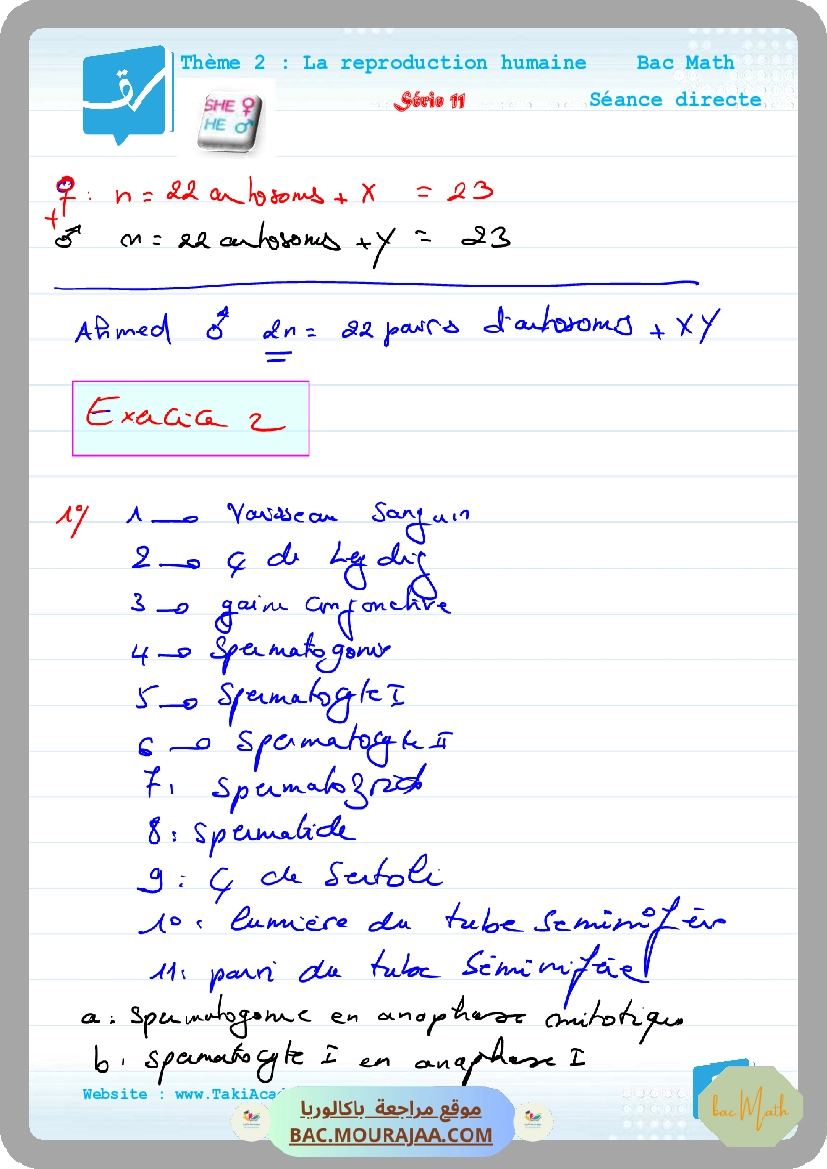 Thème 2 : La reproduction humaine Bac Math
Série 11 Séance directe
SHE ♀
HE ♂
♀ : n = 22 autosoms + X = 23
♂ n = 22 autosoms + Y = 23
Ahmed ♂ 2n = 22 pairs d'autosoms + XY
Exercice 2
1°/ 1 → Vaisseau Sanguin
2 → ç de Leydig
3 → gaine conjonctive
4 → Spermatogonie
5 → Spermatocyte I
6 → Spermatocyte II
7 : Spermatozoïde
8 : Spermatide
9 : ç de Sertoli
10 : lumière du tube Séminifère
11 : paroi du tube Séminifère
a : Spermatogonie en anaphase mitotique
b : Spermatocyte I en anaphase I
Website : www.TakiAcad
موقع مراجعة باكالوريا
BAC.MOURAJAA.COM
bac Math